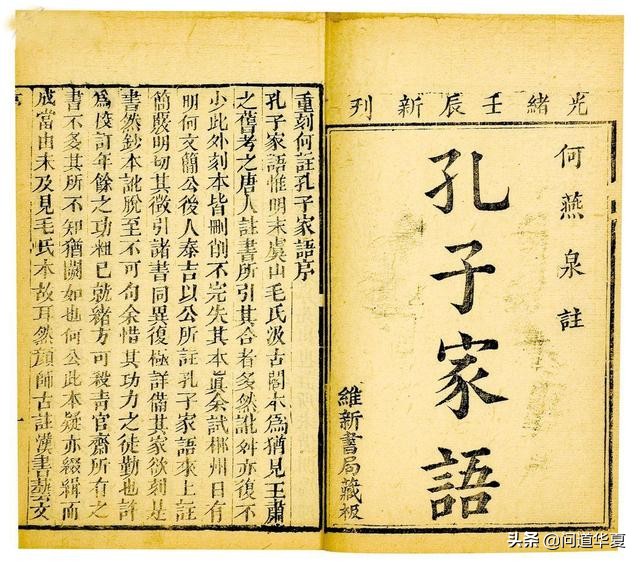 光緒壬辰新刊
何燕泉註
孔子家語
維新書局藏板
重刻何註孔子家語序
孔子家語惟明末虞山毛氏汲古閣本爲猶見王肅
之舊考之唐人註書所引其合者多然訛舛亦復不
少此外刻本皆刪削不完失其本眞余試郴州日有
明何文簡公後人泰吉以公所註孔子家語來上註
簡嚴明切其徵引諸書同異復極詳備其家欲刻是
書然鈔本訛脫至不可句余惜其功力之徒勤也許
爲校訂年餘之功粗已就緒方可殺青官齋所有之
書不多其所不知猶闕如也何公此本疑亦綴緝而
成當由未及見毛氏本故耳然顏師古註漢書藝文
序
一
头条 @问道华夏